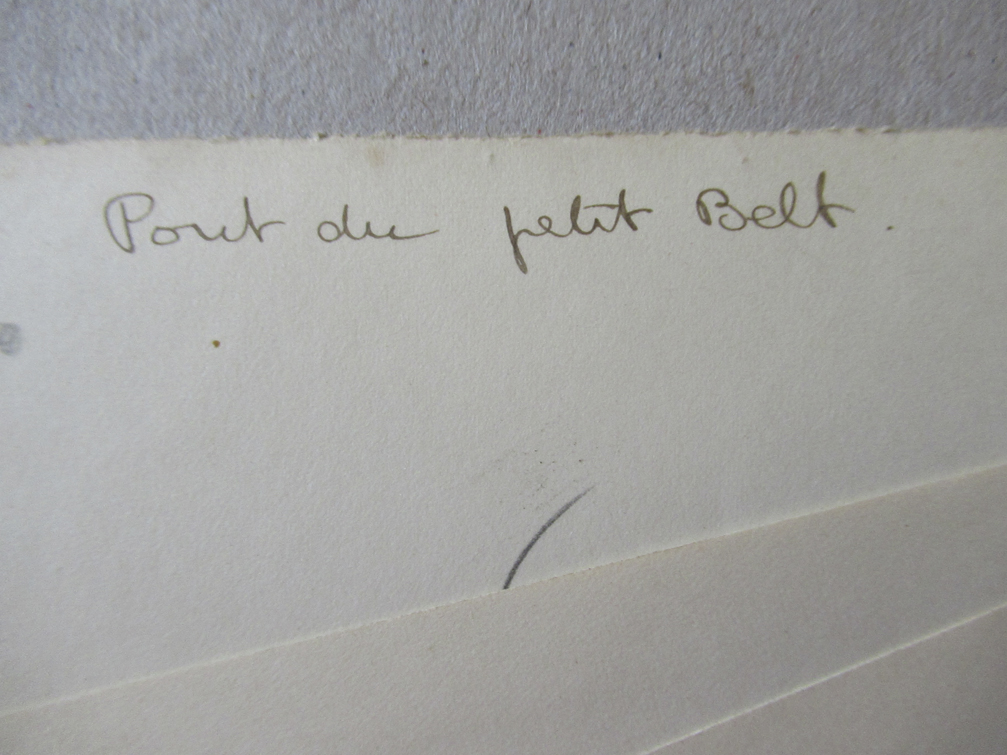 Pont du petit Belt.